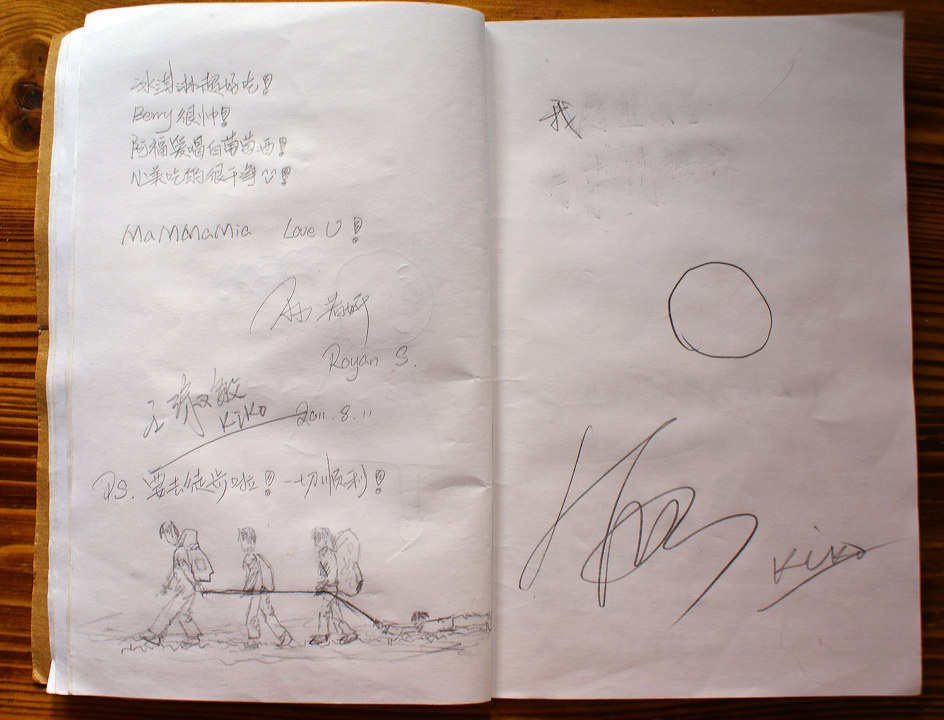 冰淇淋超好吃!
Berry很帅!
阿福爱喝白葡萄西!
小菜吃的很干净!
MaMMaMia Love U!
Royan S.
王 敏
KiKO 2011.8.11
PS. 要去徒步啦! 一切顺利!
我
KiKO